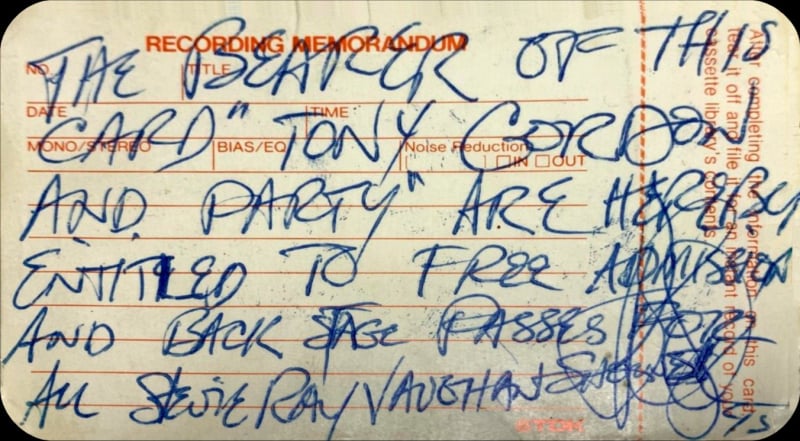 RECORDING MEMORANDUM
THE BEARER OF THIS
NO. TITLE
DATE TIME
CARD "TONY GORDON
MONO/STEREO BIAS/EQ Noise Reduction
□IN □OUT
AND PARTY" ARE HEREBY
ENTITLED TO FREE ADMISSION
AND BACK STAGE PASSES FOR
ALL STEVIE RAY VAUGHAN
After completing the information on this card
tear it off and file it for an instant record of your
cassette library's contents